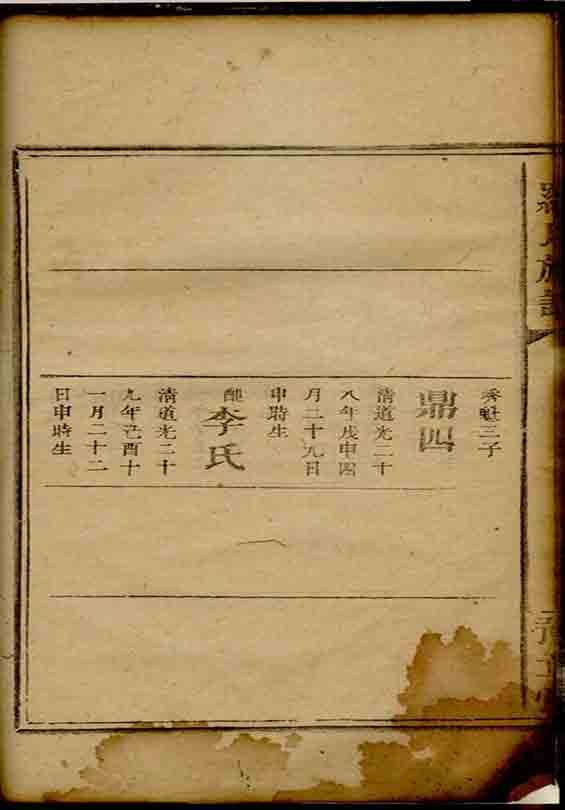 秀魁三子
鼎四
清道光二十
八年戊申四
月二十九日
申時生
配
李氏
清道光二十
九年己酉十
一月二十二
日申時生
氏族譜